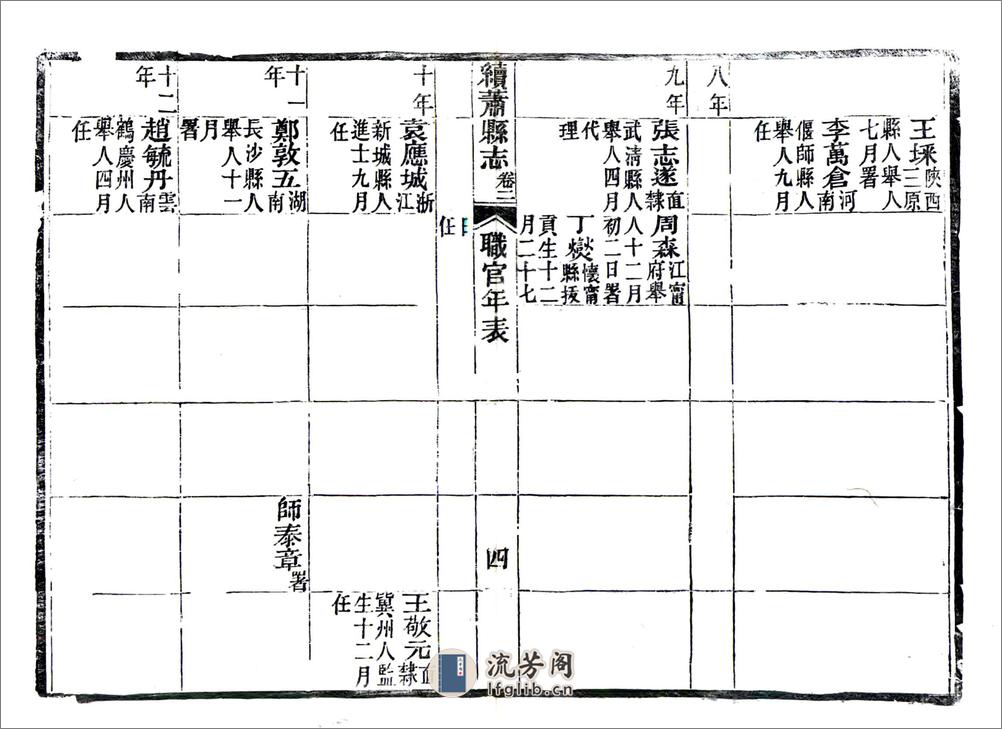 王埰陝西三原
縣人舉人
七月署
李萬倉河南
偃師縣人
舉人九月
任
八年
九年
張志遂直隸
武清縣人
舉人四月
代理
周森江甯府舉
人十二月
初二日署
丁燮懷甯縣拔
貢生十二
月二十七
續蕭縣志
卷三
職官年表
四
日
任
十年
袁應城浙江
新城縣人
進士九月
任
王敬元直隸
冀州人監
生十二月
任
十一年
鄭敦五湖南
長沙縣人
舉人十一
月署
師泰章署
十二年
趙毓丹雲南
鶴慶州人
舉人四月
任
流芳阁
lfglib.cn